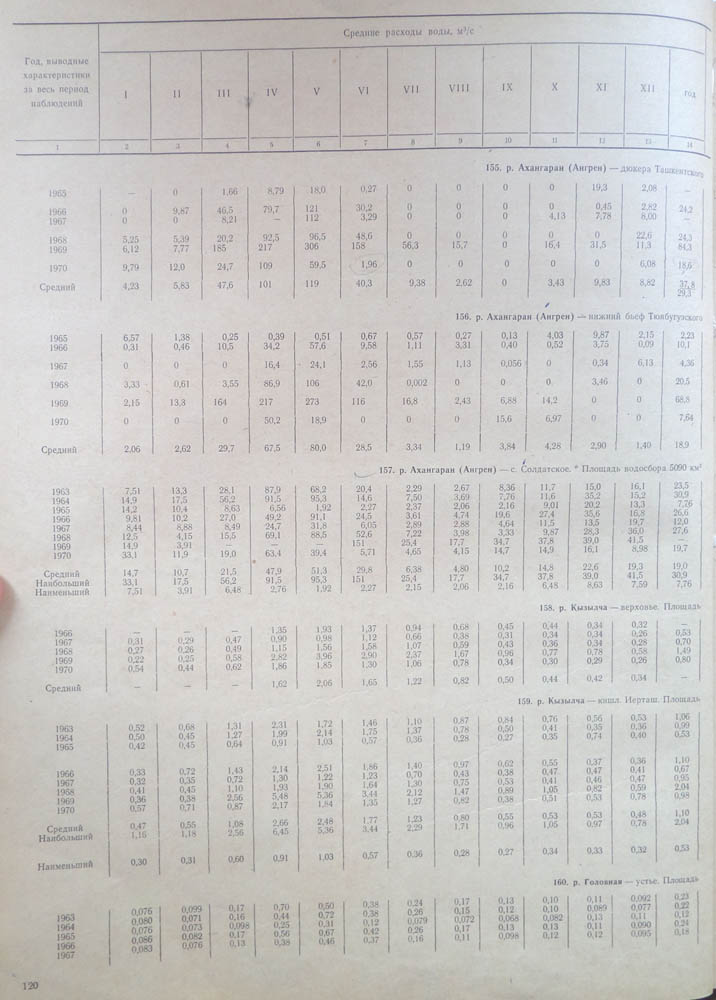 Год, выводные характеристики за весь период наблюдений
Средние расходы воды, м³/с
I II III IV V VI VII VIII IX X XI XII год
1 2 3 4 5 6 7 8 9 10 11 12 13 14
155. р. Ахангаран (Ангрен) — дюкера Ташкентского
1965 — 0 1,66 8,79 18,0 0,27 0 0 0 0 19,3 2,08 —
1966 0 9,87 46,5 79,7 121 30,2 0 0 0 0 0,45 2,82 24,2
1967 0 0 8,21 — 112 3,29 0 0 0 4,13 7,78 8,00 —
1968 5,25 5,39 20,2 92,5 96,5 48,6 0 0 0 0 0 22,6 24,3
1969 6,12 7,77 185 217 306 158 56,3 15,7 0 16,4 31,5 11,3 84,3
1970 9,79 12,0 24,7 109 59,5 1,96 0 0 0 0 0 6,08 18,6
Средний 4,23 5,83 47,6 101 119 40,3 9,38 2,62 0 3,43 9,83 8,82 37,8
29,3
156. р. Ахангаран (Ангрен) — нижний бьеф Тюябугузского
1965 6,57 1,38 0,25 0,39 0,51 0,67 0,57 0,27 0,13 4,03 9,87 2,15 2,23
1966 0,31 0,46 10,5 34,2 57,6 9,58 1,11 3,31 0,40 0,52 3,75 0,09 10,1
1967 0 0 0 16,4 24,1 2,56 1,55 1,13 0,056 0 0,34 6,13 4,36
1968 3,33 0,61 3,55 86,9 106 42,0 0,002 0 0 0 3,46 0 20,5
1969 2,15 13,3 164 217 273 116 16,8 2,43 6,88 14,2 0 0 68,8
1970 0 0 0 50,2 18,9 0 0 0 15,6 6,97 0 0 7,64
Средний 2,06 2,62 29,7 67,5 80,0 28,5 3,34 1,19 3,84 4,28 2,90 1,40 18,9
157. р. Ахангаран (Ангрен) — с. Солдатское. * Площадь водосбора 5090 км²
1963 7,51 13,3 28,1 87,9 68,2 20,4 2,29 2,67 8,36 11,7 15,0 16,1 23,5
1964 14,9 17,5 56,2 91,5 95,3 14,6 7,50 3,69 7,76 11,6 35,2 15,2 30,9
1965 14,2 10,4 8,63 6,56 1,92 2,27 2,37 2,06 2,16 9,01 20,2 13,3 7,76
1966 9,81 10,2 27,0 49,2 91,1 24,5 3,61 4,74 19,6 27,4 35,6 16,8 26,6
1967 8,44 8,88 8,49 24,7 31,8 6,05 2,89 2,88 4,64 11,5 13,5 19,7 12,0
1968 12,5 4,15 15,5 69,1 88,5 52,6 7,22 3,98 3,33 9,87 28,3 36,0 27,6
1969 14,9 3,91 — — — 151 25,4 17,7 34,7 37,8 39,0 41,5 —
1970 33,1 11,9 19,0 63,4 39,4 5,71 4,65 4,15 14,7 14,9 16,1 8,98 19,7
Средний 14,7 10,7 21,5 47,9 51,3 29,8 6,38 4,80 10,2 14,8 22,6 19,3 19,0
Наибольший 33,1 17,5 56,2 91,5 95,3 151 25,4 17,7 34,7 37,8 39,0 41,5 30,9
Наименьший 7,51 3,91 6,48 2,76 1,92 2,27 2,15 2,06 2,16 6,48 8,63 7,59 7,76
158. р. Кызылча — верховье. Площадь
1966 — — — 1,35 1,93 1,37 0,94 0,68 0,45 0,44 0,34 0,32 —
1967 0,31 0,29 0,47 0,90 0,98 1,12 0,66 0,38 0,31 0,34 0,34 0,26 0,53
1968 0,27 0,26 0,49 1,15 1,56 1,58 1,07 0,59 0,43 0,36 0,34 0,28 0,70
1969 0,22 0,25 0,58 2,82 3,96 2,90 2,37 1,67 0,96 0,77 0,78 0,58 1,49
1970 0,54 0,44 0,62 1,86 1,85 1,30 1,06 0,78 0,34 0,30 0,29 0,26 0,80
Средний — — — 1,62 2,06 1,65 1,22 0,82 0,50 0,44 0,42 0,34 —
159. р. Кызылча — кишл. Нерташ. Площадь
1963 0,52 0,68 1,31 2,31 1,72 1,46 1,10 0,87 0,84 0,76 0,56 0,53 1,06
1964 0,50 0,45 1,27 1,99 2,14 1,75 1,37 0,78 0,50 0,41 0,35 0,36 0,99
1965 0,42 0,45 0,64 0,91 1,03 0,57 0,36 0,28 0,27 0,35 0,74 0,40 0,53
1966 0,33 0,72 1,43 2,14 2,51 1,86 1,40 0,97 0,62 0,55 0,37 0,36 1,10
1967 0,32 0,35 0,72 1,30 1,22 1,23 0,70 0,43 0,38 0,47 0,47 0,41 0,67
1968 0,41 0,45 1,10 1,93 1,90 1,64 1,30 0,75 0,53 0,41 0,46 0,47 0,95
1969 0,36 0,38 2,56 5,48 5,36 3,44 2,12 1,47 0,89 1,05 0,82 0,59 2,04
1970 0,57 0,71 0,87 2,17 1,84 1,35 1,27 0,82 0,38 0,51 0,53 0,78 0,98
Средний 0,47 0,55 1,08 2,66 2,48 1,77 1,23 0,80 0,55 0,53 0,53 0,48 1,10
Наибольший 1,16 1,18 2,56 6,45 5,36 3,44 2,29 1,71 0,96 1,05 0,97 0,78 2,04
Наименьший 0,30 0,31 0,60 0,91 1,03 0,57 0,36 0,28 0,27 0,34 0,33 0,32 0,53
160. р. Головная — устье. Площадь
1963 0,076 0,099 0,17 0,70 0,50 0,38 0,24 0,17 0,13 0,10 0,11 0,092 0,23
1964 0,080 0,071 0,16 0,44 0,72 0,38 0,26 0,15 0,12 0,10 0,089 0,077 0,22
1965 0,076 0,073 0,098 0,25 0,31 0,12 0,079 0,072 0,068 0,082 0,13 0,11 0,12
1966 0,086 0,082 0,17 0,56 0,67 0,42 0,26 0,17 0,13 0,13 0,11 0,090 0,24
1967 0,083 0,076 0,13 0,38 0,46 0,37 0,16 0,11 0,098 0,12 0,12 0,095 0,18
120